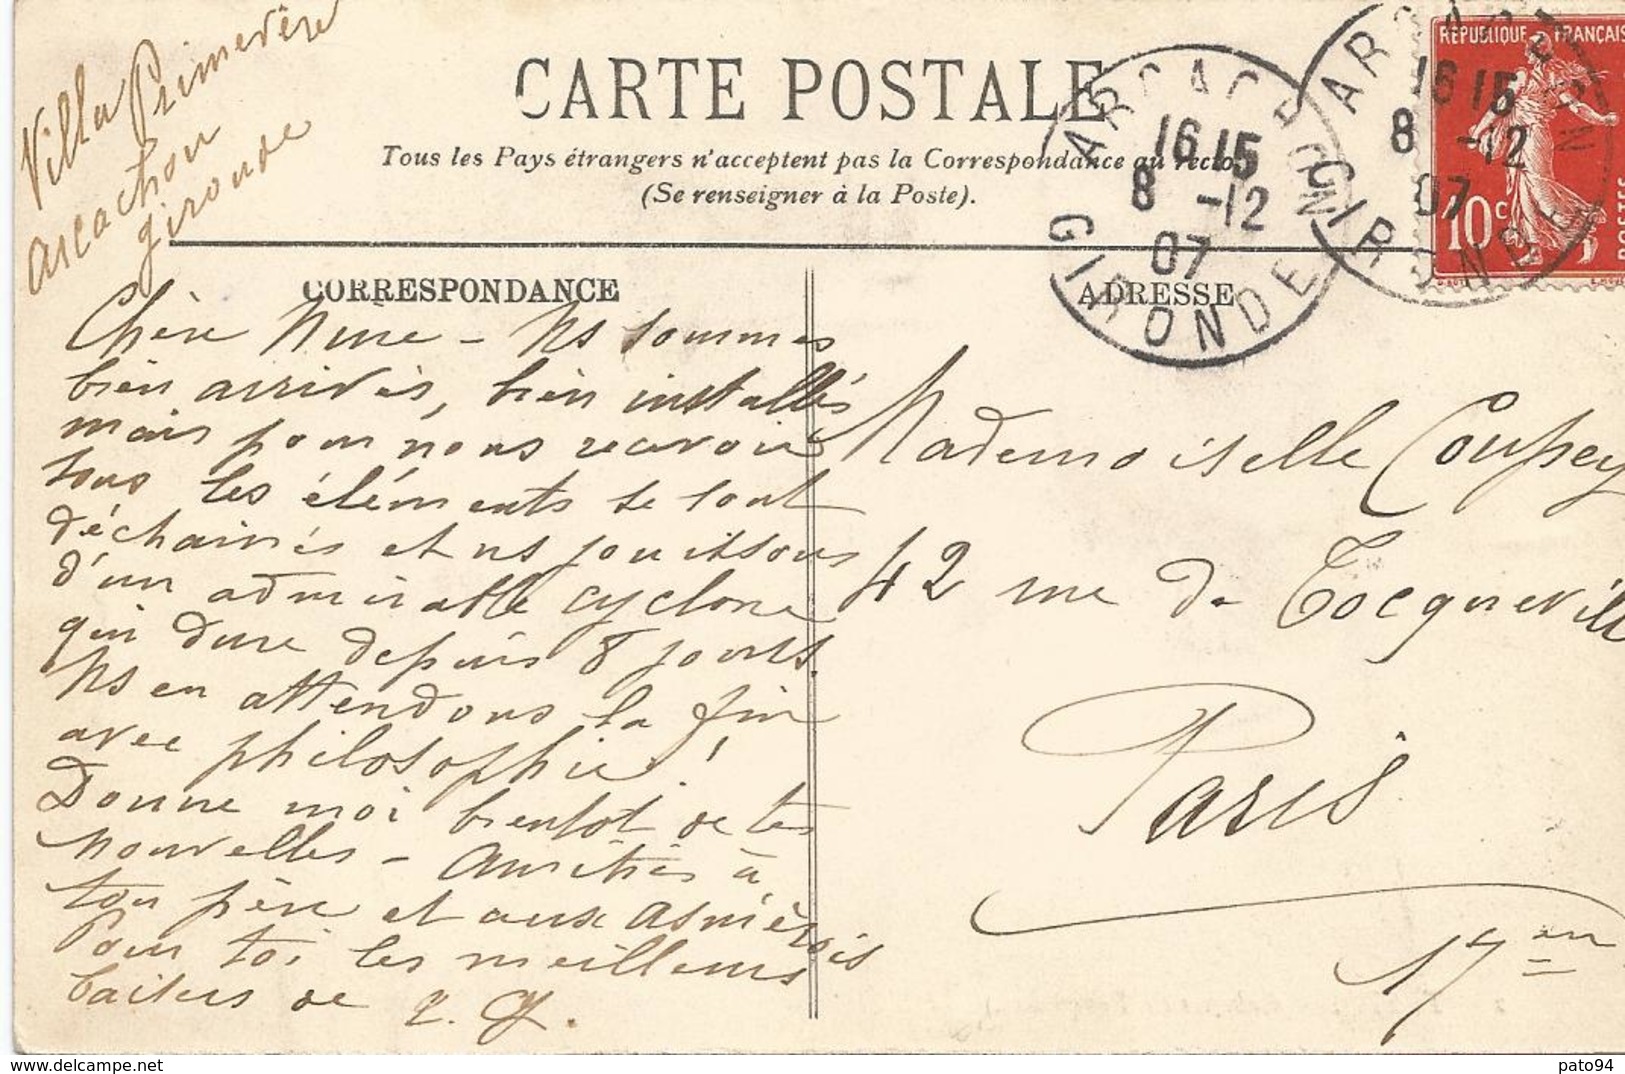 Villa Primevère
Arcachon
Gironde
CARTE POSTALE
Tous les Pays étrangers n'acceptent pas la Correspondance au recto.
(Se renseigner à la Poste).
ARCACHON
16 15
8 -12
07
GIRONDE
ARCACHON
16 15
8 -12
07
GIRONDE
RÉPUBLIQUE FRANÇAISE
10c
POSTES
CORRESPONDANCE
Chère Nine - Ns sommes
bien arrivés, bien installés
mais pour nous recevoir
tous les éléments se sont
déchainés et ns jouissons
d'un admirable cyclone
qui dure depuis 8 jours.
Ns en attendons la fin
avec philosophie !
Donne moi bientot de tes
nouvelles - Amitiés à
ton père et aux Asnièrois
Pour toi les meilleurs
baisers de
ADRESSE
Mademoiselle Coupey
42 rue de Tocqueville
Paris
17em
pato94